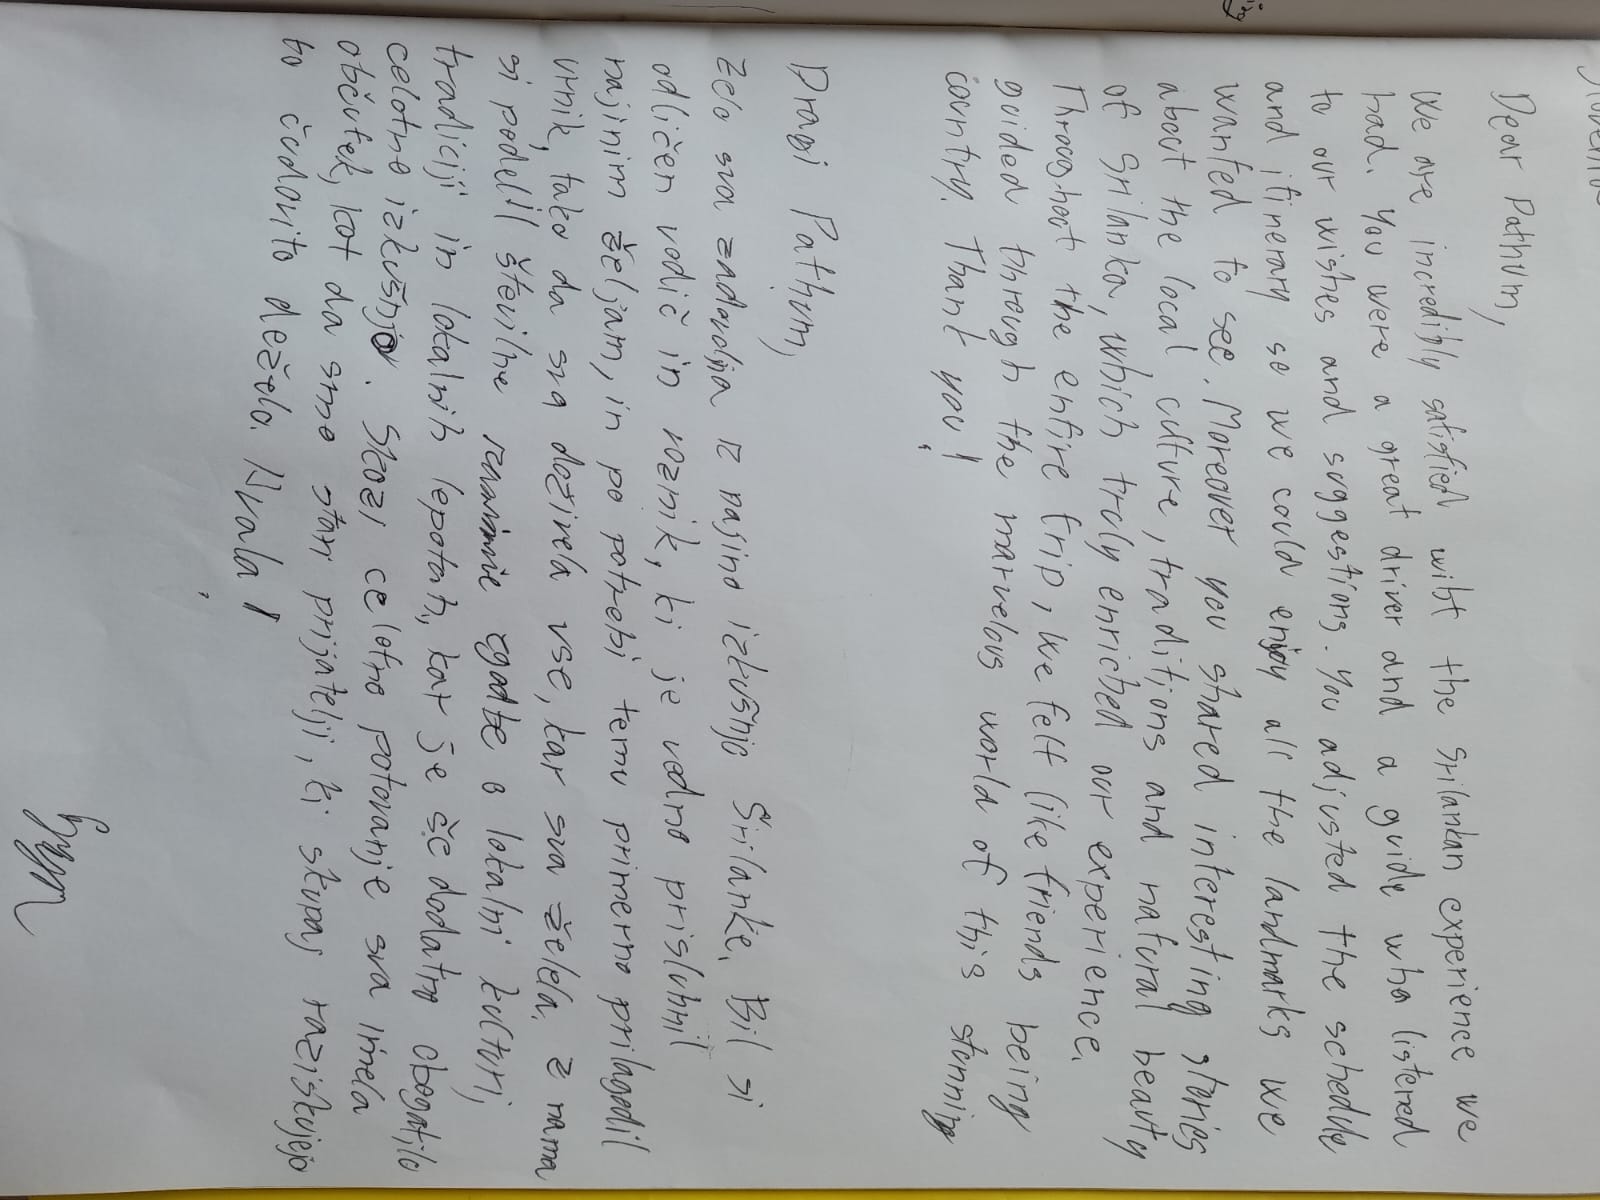 Dear Pathum,
We are incredibly satisfied wiht the Srilankan experience we
had. You were a great driver and a guide who listered
to our wishes and suggestions. You adjusted the schedule
and itinerary so we could enjoy all the landmarks we
wanted to see. Moreover you shared interesting stories
about the local culture, traditions and natural beauty
of Srilanka, which truly enriched our experience.
Throughout the entire trip, we felt like friends being
guided through the marvelous world of this stunning
country. Thank you!
Dragi Pathum,
Zelo sva zadovoljna z najino izkušnjo Šrilanke. Bil si
odličen vodič in voznik, ki je vedno prisluhnil
najinim željam, in po potrebi temu primerno prilagodil
urnik, tako da sva doživela vse, kar sva želela. Z nama
si podelil številne zanimive zgodbe o lokalni kulturi,
tradiciji in lokalnih lepotah, kar je še dodatno obogatilo
celotno izkušnjo. Skozi celotno potovanje sva imela
občutek, kot da smo stari prijatelji, ki skupaj raziskujejo
to čudovito deželo. Hvala!